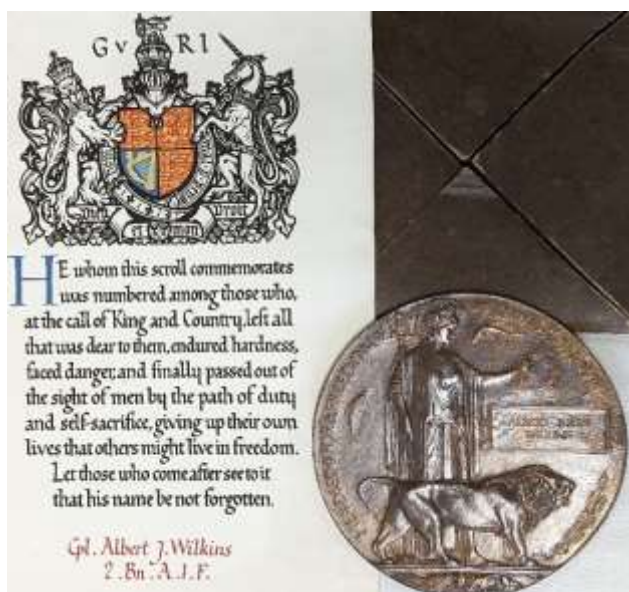 G V R I
Dieu et mon Droit
HE whom this scroll commemorates
was numbered among those who,
at the call of King and Country, left all
that was dear to them, endured hardness,
faced danger, and finally passed out of
the sight of men by the path of duty
and self-sacrifice, giving up their own
lives that others might live in freedom.
Let those who come after see to it
that his name be not forgotten.
Cpl. Albert J. Wilkins
2. Bn. A.I.F.